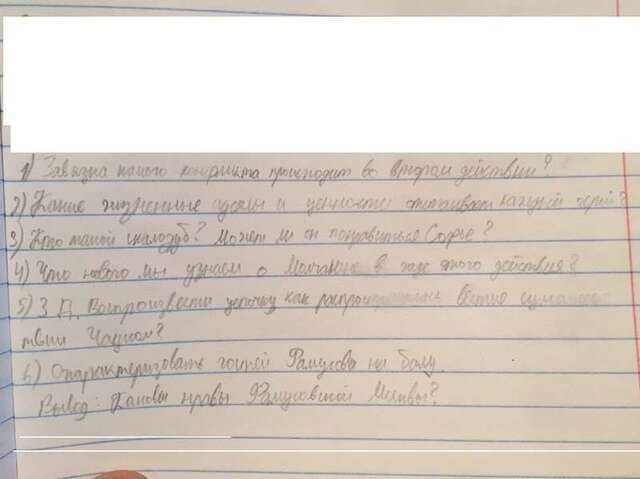 1) Завязка какого конфликта происходит во втором действии?
2) Какие жизненные идеалы и ценности отстаивает каждый герой?
3) Кто такой скалозуб? Может ли он понравиться Софье?
4) Что нового мы узнаем о Молчалине в ходе этого действия?
5) 3 Д. Воспроизвести цепочку как вестие
твии Чацком?
6) Охарактеризовать гостей Фамусова на балу.
Вывод: Каковы нравы Фамусовской Москвы?